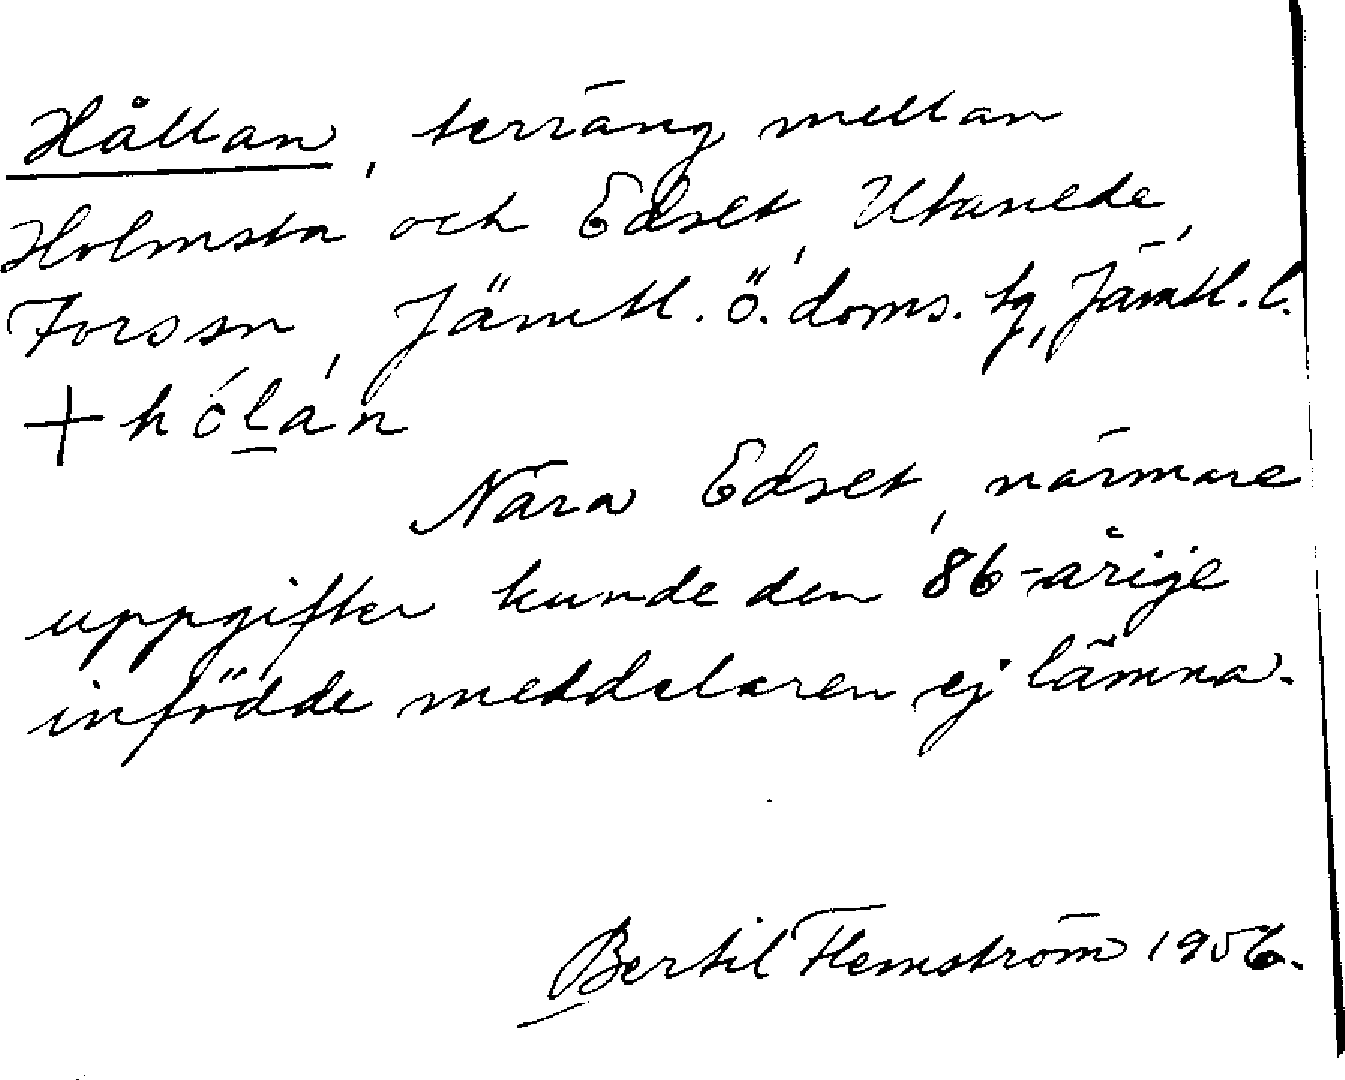 Hållan, terräng mellan
Holmsta och Edset, Utanede,
Forssa, Jämtl. ö. doms. tg, Jämtl. l.
+ hólán
Nära Edset, närmare
uppgifter kunde den 86-årige
infödde meddelaren ej lämna.
Bertil Flemström 1956.